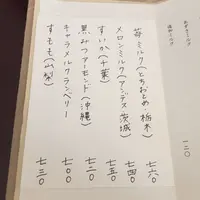 苺ミルク(とちおとめ・栃木) 七六〇
メロンミルク(アンデス・茨城) 七四〇
すいか(千葉) 七五〇
黒みつアーモンド(沖縄) 七二〇
キャラメルクランベリー 七〇〇
すもも(山梨) 七三〇